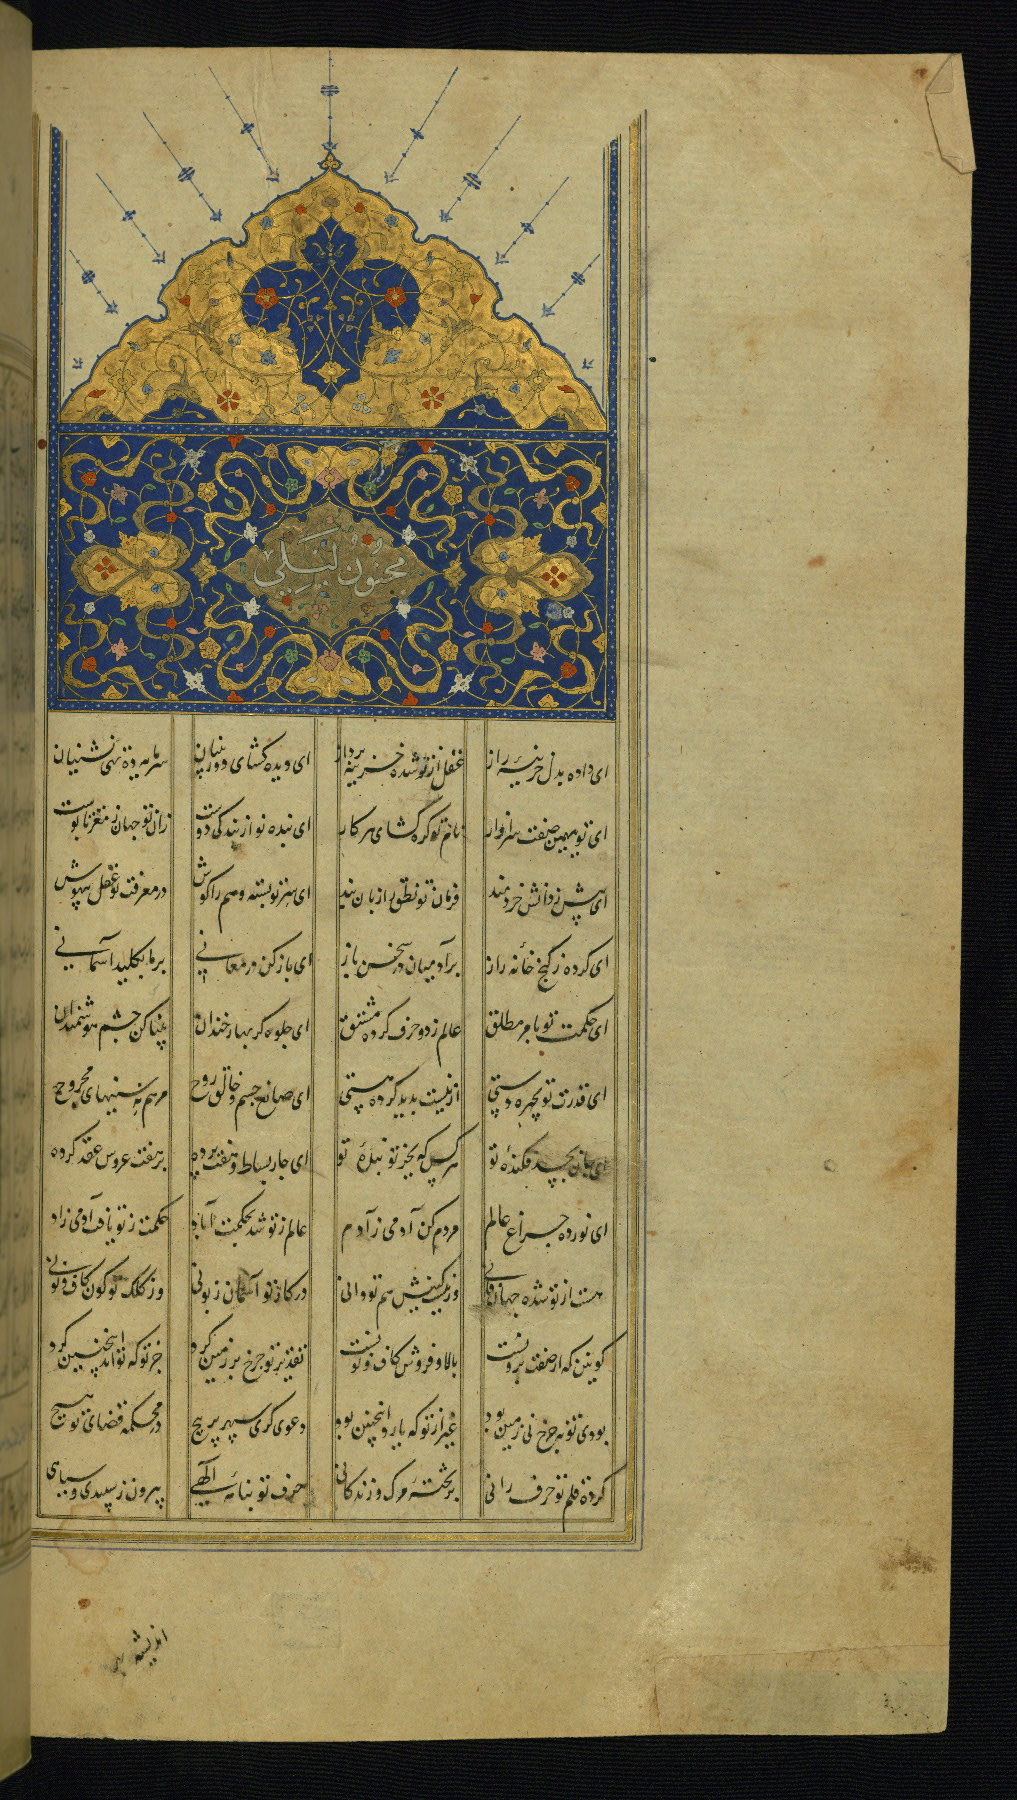 مجنون لیلی
ای داده بدل خزینه راز عقل از تو شده خزینه پرداز ای دیده کشای دوربینان سرمایه ده تهی نشینان
ای تو بهمین صفت سزاوار نام تو گره گشای هر کار ای بنده نواز بندگی دوست زان تو جهان ز مغز تا پوست
ای بیش ز دانش خردمند فرمان تو نطق را زبان بند ای سر تو بسته وهم را گوش در معرفت تو عقل بیهوش
ای کرده ز گنج خانه راز بر آدمیان در سخن باز ای باز کن در معانی بر ما بکلید آسمانی
ای حکمت تو بامر مطلق عالم ز دو حرف کرده مشتق ای جلوه گر بهار خندان بینا کن چشم هوشمندان
ای قدرت تو بچیره دستی از نیست پدید کرده هستی ای صانع جسم و خالق روح مرهم نه سینهای مجروح
تو هر کس که بجز تو بنده تو ای چار بساط و هفت پرده بر هفت عروس عقد کرده
ای نور ده چراغ عالم مردم کن آدمی ز آدم عالم ز تو شد بحکمت آباد حکمت ز تو یافت آدمی زاد
هست از تو شده جهان فانی وز نیست کنیش هم تو دانی در کار تو آسمان زبونی وز کلک تو کون کاف و نونی
کونین که از صفت برونست بالا و فروش کاف و نونست تقدیر تو چرخ بر زمین کرد جز تو که تواند اینچنین کرد
بودی تو نه چرخ نی زمین بود غیر از تو که یارد اینچنین بود دعوی گری سپهر پر پیچ در محکمه قضای تو هیچ
کرده قلم تو حرف رانی بر تخته مرگ و زندگانی حرف تو بنامه الهی بیرون ز سپیدی و سیاهی
اندیشه